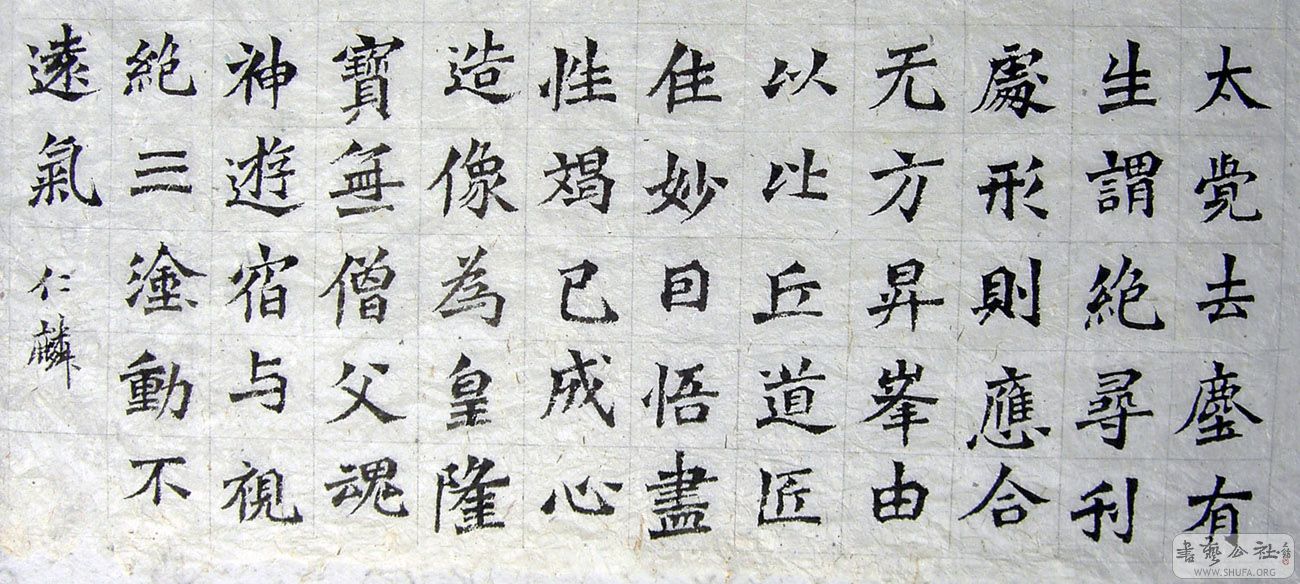 太覺去塵有
生謂絕尋利
處形則應合
无方昇峯由
以比丘道匠
住妙曰悟盡
性竭已成心
造像為皇隆
寶無僧父魂
神遊宿与視
絕三塗動不
遠氣
仁麟
書藝公社
WWW.SHUFA.ORG